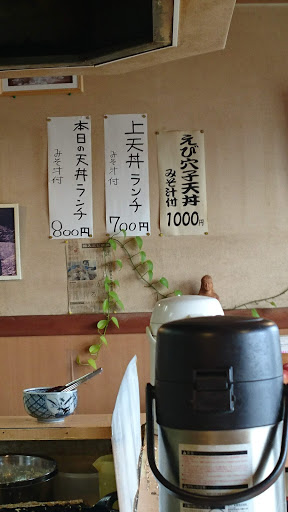 えび穴子天丼
みそ汁付
1000円
上天丼ランチ
みそ汁付
700円
本日の天丼ランチ
みそ汁付
800円